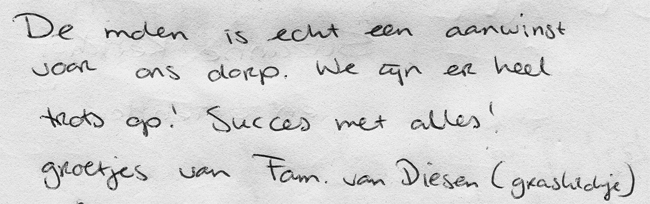 De molen is echt een aanwinst
voor ons dorp. We zijn er heel
trots op! Succes met alles!
groetjes van Fam. van Diesen (